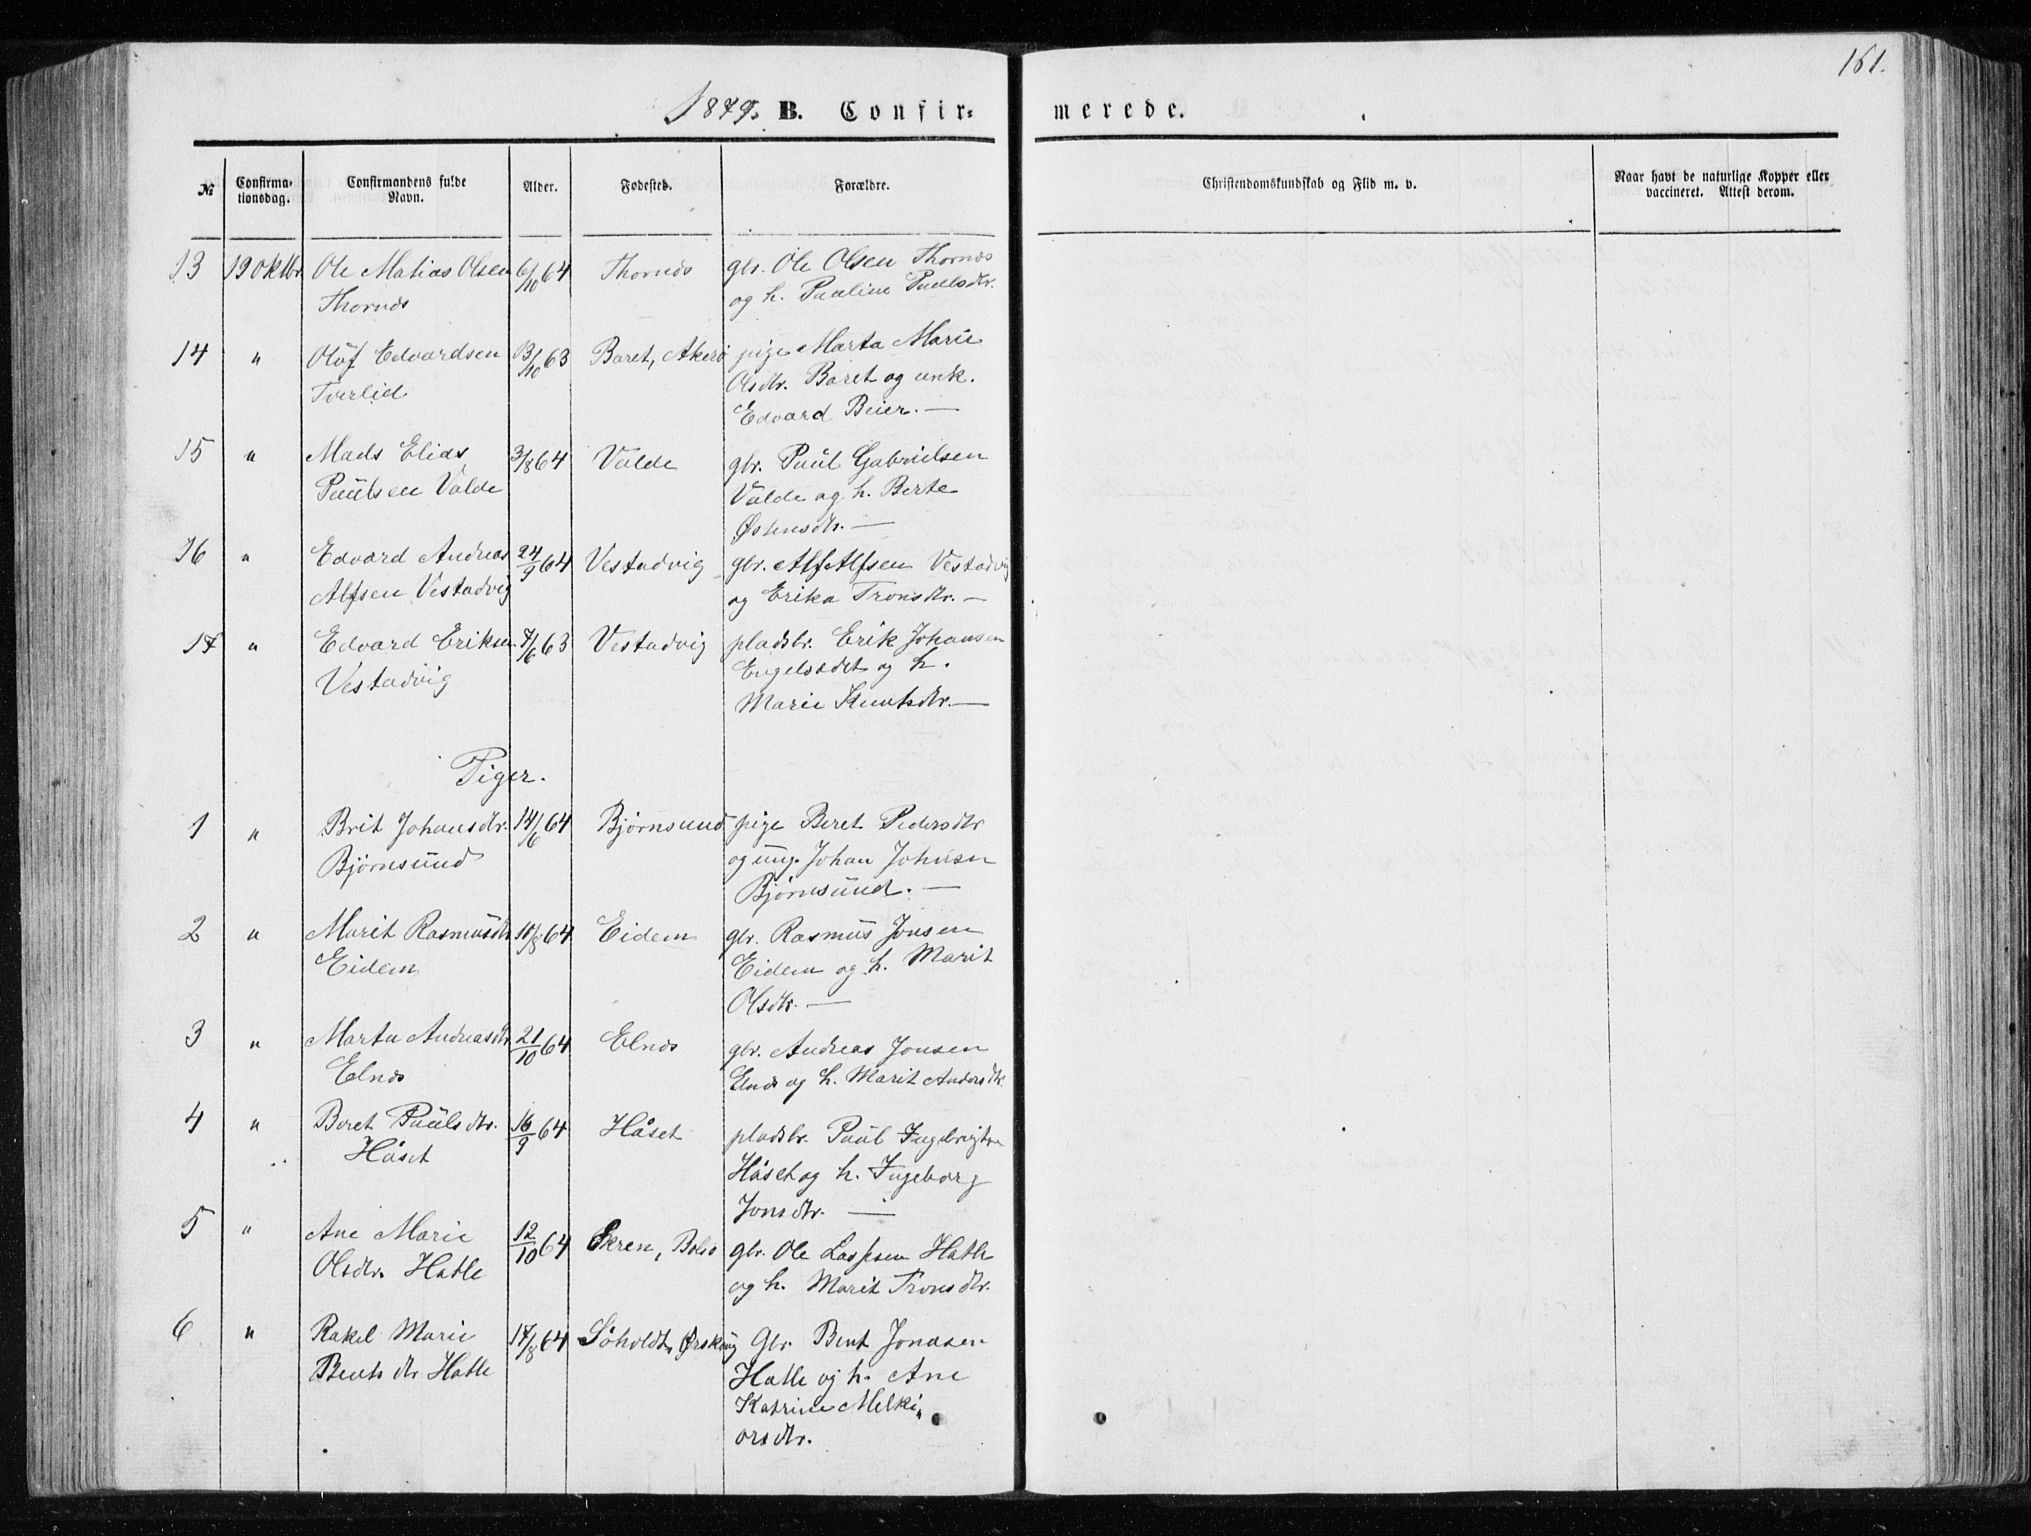 161.
1879. B. Confir-
merede.
№
Confirma-
tionsdag.
Confirmandens fulde
Navn.
Alder.
Fødested.
Forældre.
Christendomskundskab og Flid m. v.
Naar havt de naturlige Kopper eller
vaccineret. Attest derom.
13 19 oktbr. Ole Matias Olsen 6/10 64 Thornes gbr. Ole Olsen Thornes
Thornes og h. Pauline Paulsdtr.
14 " Olöf Edvardsen 13/10 63 Baret, Akerö pige Marta Marie
Tverlid Olsdtr. Baret og unk.
Edvard Beier. —
15 " Mads Elias 3/8 64 Valde gbr. Paul Gabrielsen
Paulsen Valde Valde og h. Berte
Østensdtr. —
16 " Edvard Andreas 24/9 64 Vestadvig gbr. Alf Alfsen Vestadvig
Alfsen Vestadvig og Erika Tronsdtr. —
17 " Edvard Eriksen 7/6 63 Vestadvig pladsbr. Erik Johansen
Vestadvig Engelsædet og h.
Marie Knutsdtr. —
Piger.
1 " Brit Johansdtr. 14/6 64 Bjørnsund pige Beret Pedersdtr
Bjørnsund og ung. Johan Johnsen
Bjørnsund. —
2 " Marit Rasmusdtr 10/8 64 Eidem gbr. Rasmus Jonsen
Eidem Eidem og h. Marit
Olsdtr. —
3 " Marta Andreasdtr. 21/10 64 Elnes gbr. Andreas Jonsen
Elnes Elnes og h. Marit Andersdtr.
4 " Beret Paulsdtr. 16/9 64 Håset pladsbr. Paul Ingebrigtsen
Håset Håset og h. Ingeborg
Jonsdtr. —
5 " Ane Marie 12/10 64 Skren, Bolsö gbr. Ole Lassesen Hatle
Olsdtr. Hatle og h. Marit Tronsdtr.
6 " Rakel Marie 17/8 64 Søholdt, Ørskoug Gbr. Bent Jonasen
Bentsdtr Hatle Hatle og h. Ane
Katrine Melki„
orsdtr.